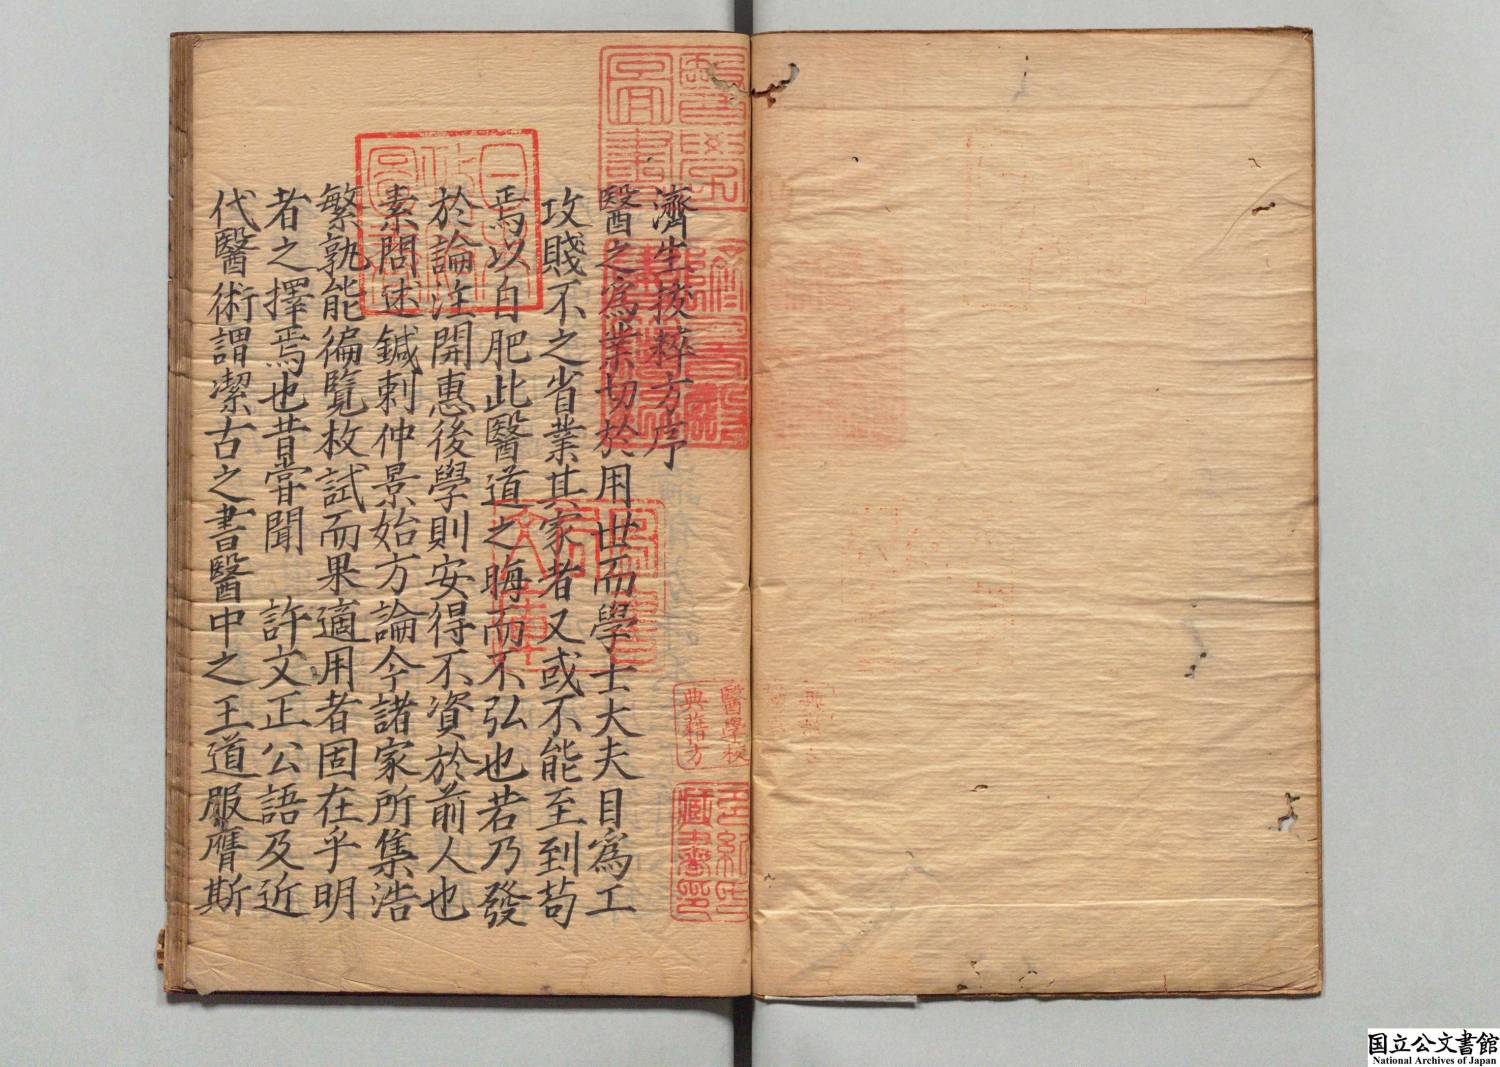 濟生拔粹方序
醫之爲業切於用世而學士大夫目爲工
攻賤不之省業其家者又或不能至到苟
焉以自肥此醫道之晦而不弘也若乃發
於論注開惠後學則安得不資於前人也
素問述鍼刺仲景始方論今諸家所集浩
繁孰能徧覽枚試而果適用者固在乎明
者之擇焉也昔嘗聞 許文正公語及近
代醫術謂潔古之書醫中之王道服膺斯
醫學校
典籍方
藏書
国立公文書館
National Archives of Japan